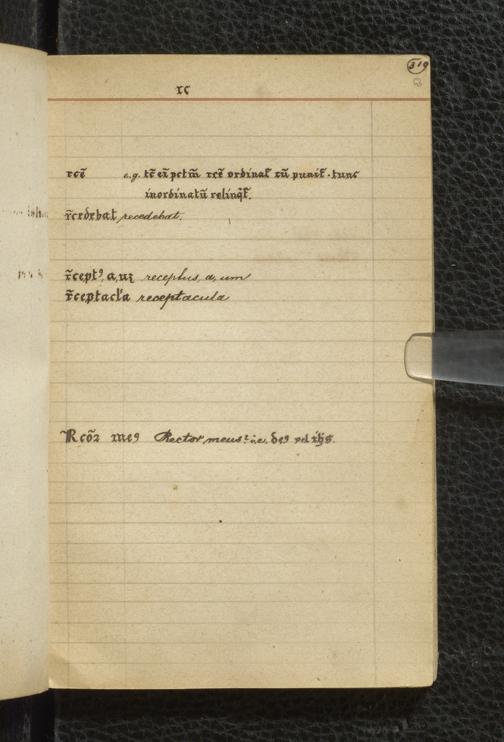 319
rc
rcē e.g. tē eī pctm̄ rcē ordinat̄ cū punit̄. tunc
inordinatū relinqt̄.
r̄cedebat recedebat.
r̄ceptꝰ, a, uꝫ receptus, a, um
r̄ceptacl̄a receptacula
Rcōꝛ meꝰ Rector meus? i.e. deꝰ vel